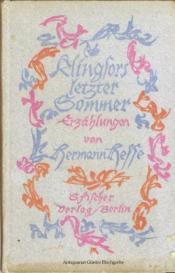 Klingsors
letzter
Sommer
Erzählungen
von
Hermann Hesse
S. Fischer
Verlag / Berlin
Antiquariat Günter Hochgrebe